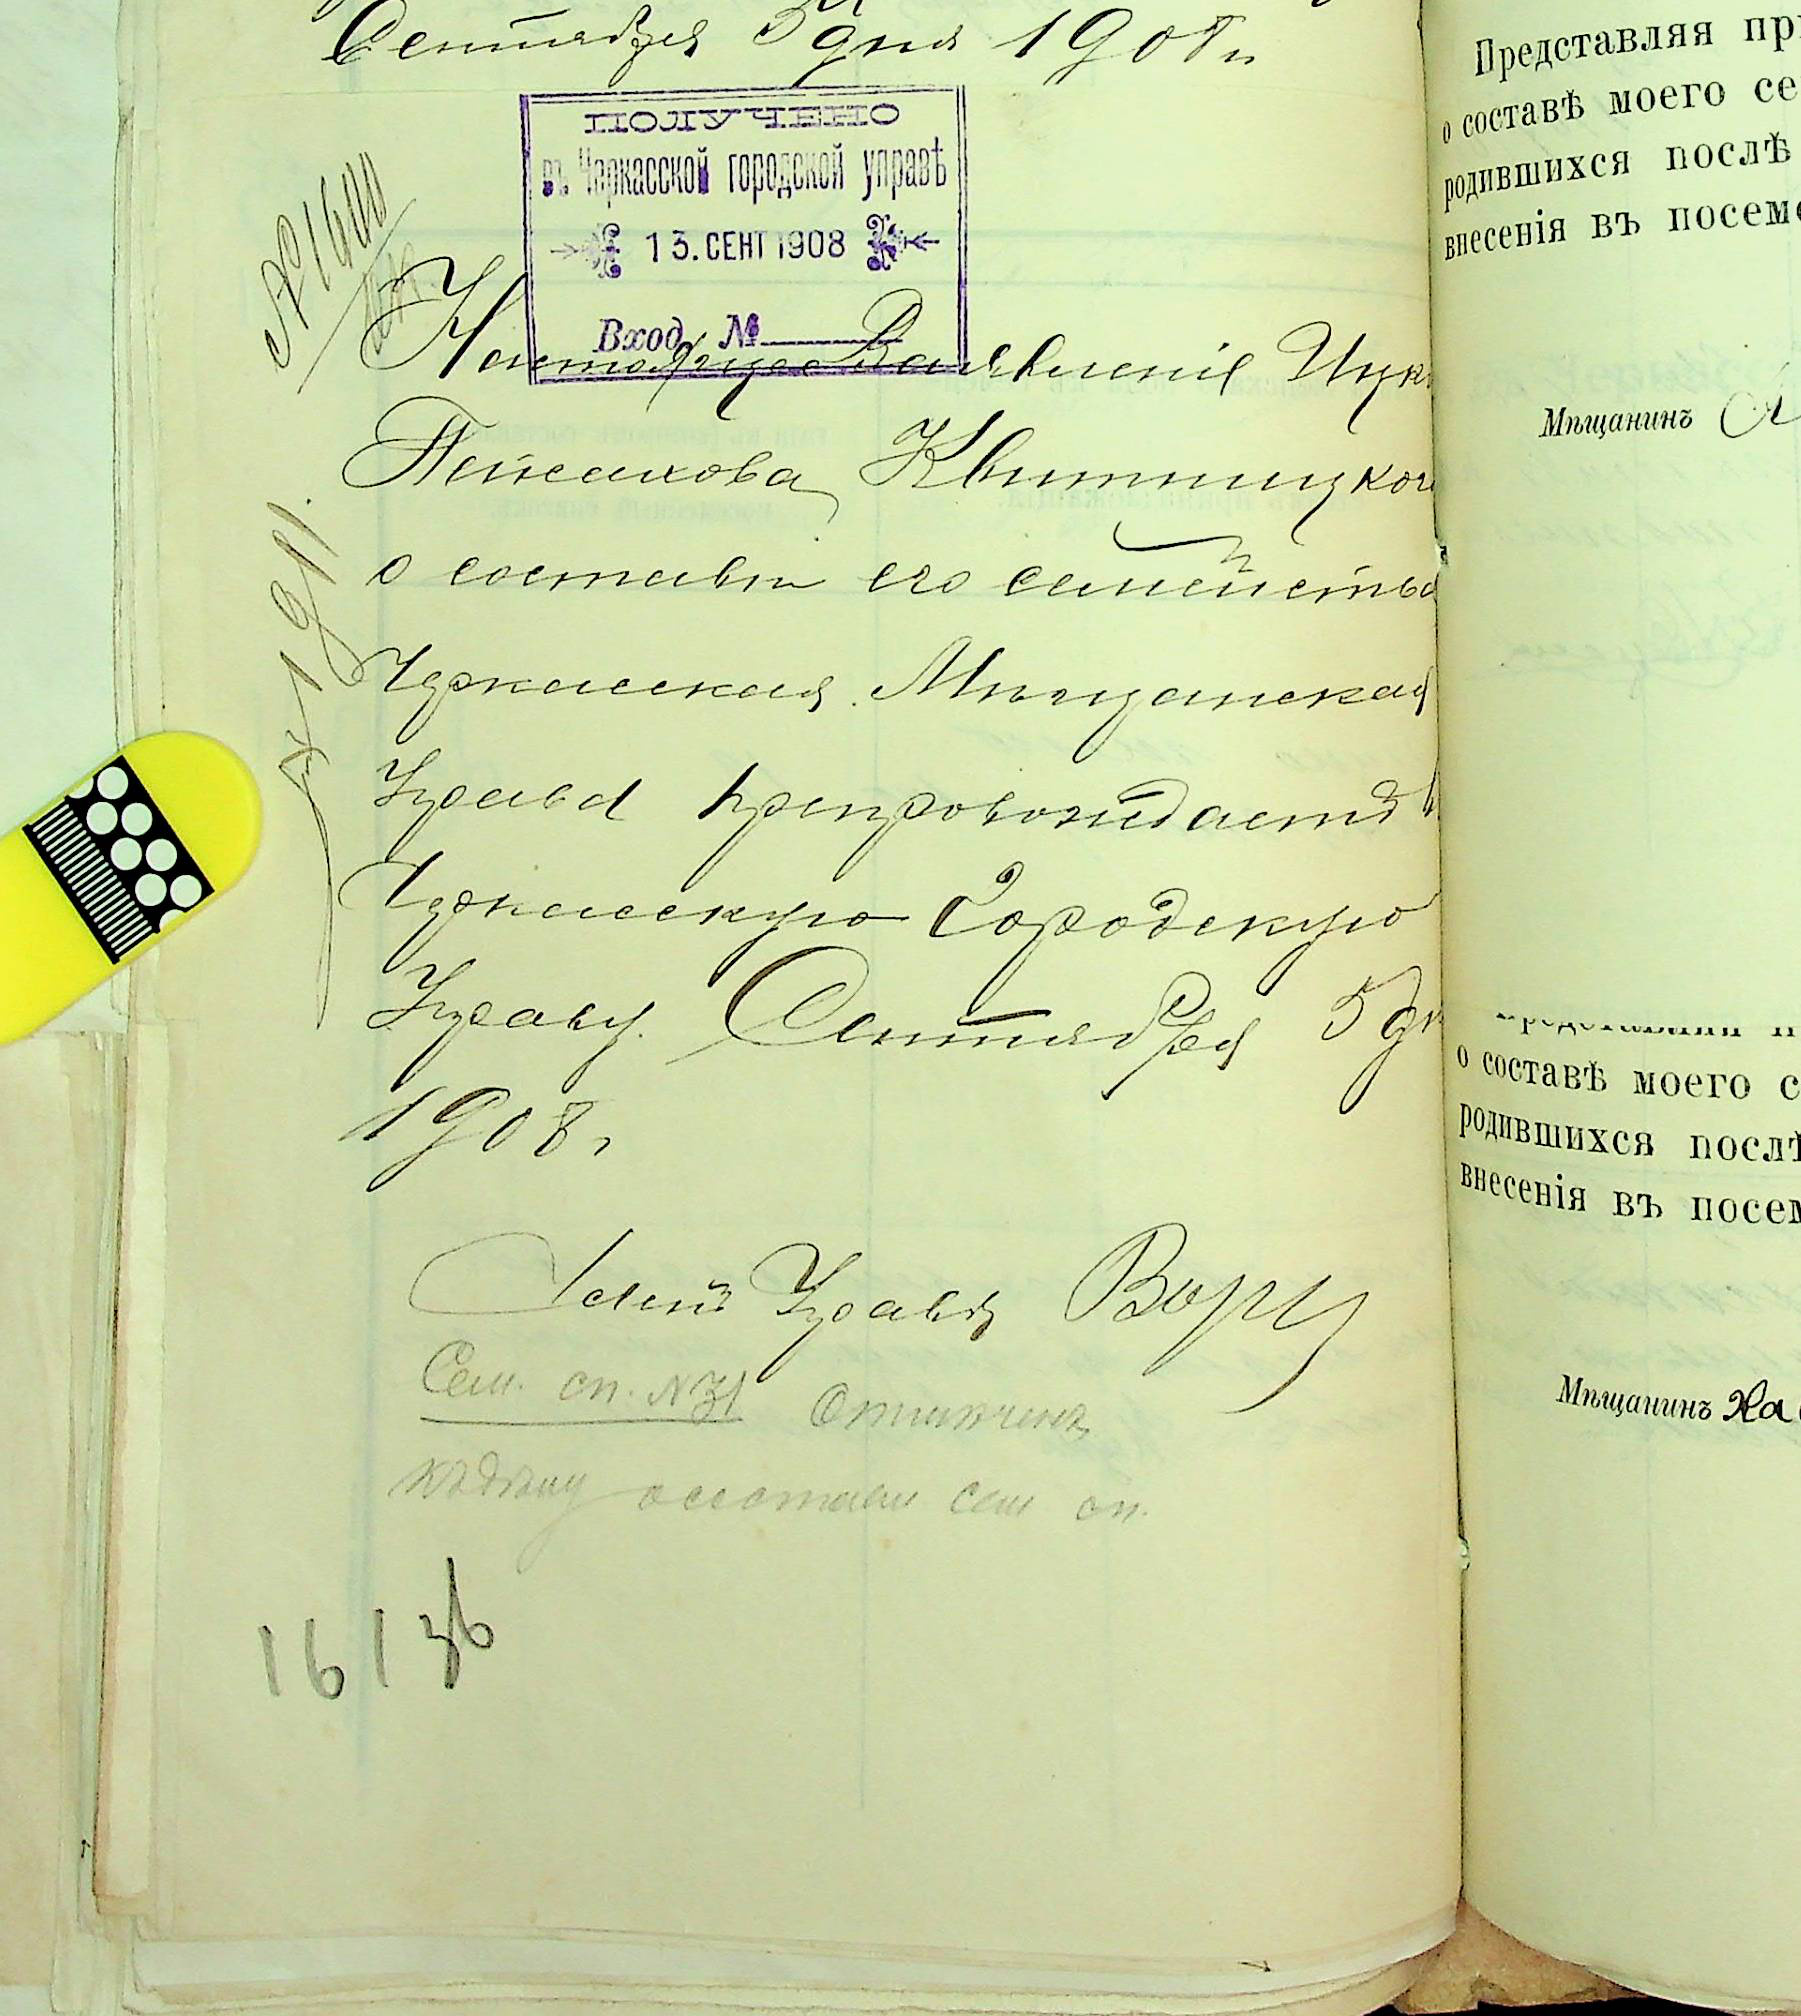 Сентября 5 дня 1908 г.
ПОЛУЧЕНО
въ Черкасской городской управѣ
13. СЕНТ 1908
Вход. №
№ 1600
Настоящее Заявленіе Ицк
Пейсахова Квитницког
о составѣ его семейства
Черкасская Мѣщанская
Управа препровождаетъ в
Черкасскую Городскую
Управу. Сентября 5 дн
1908 г.
Членъ Управы
Сем. сп. № 31 Отмѣченъ
составѣ сем сп.
161 зв
Представляя пр
о составѣ моего се
родившихся послѣ
внесенія въ посем
Мѣщанинъ
о составѣ моего с
родившихся послѣ
внесенія въ посем
Мѣщанинъ Ха